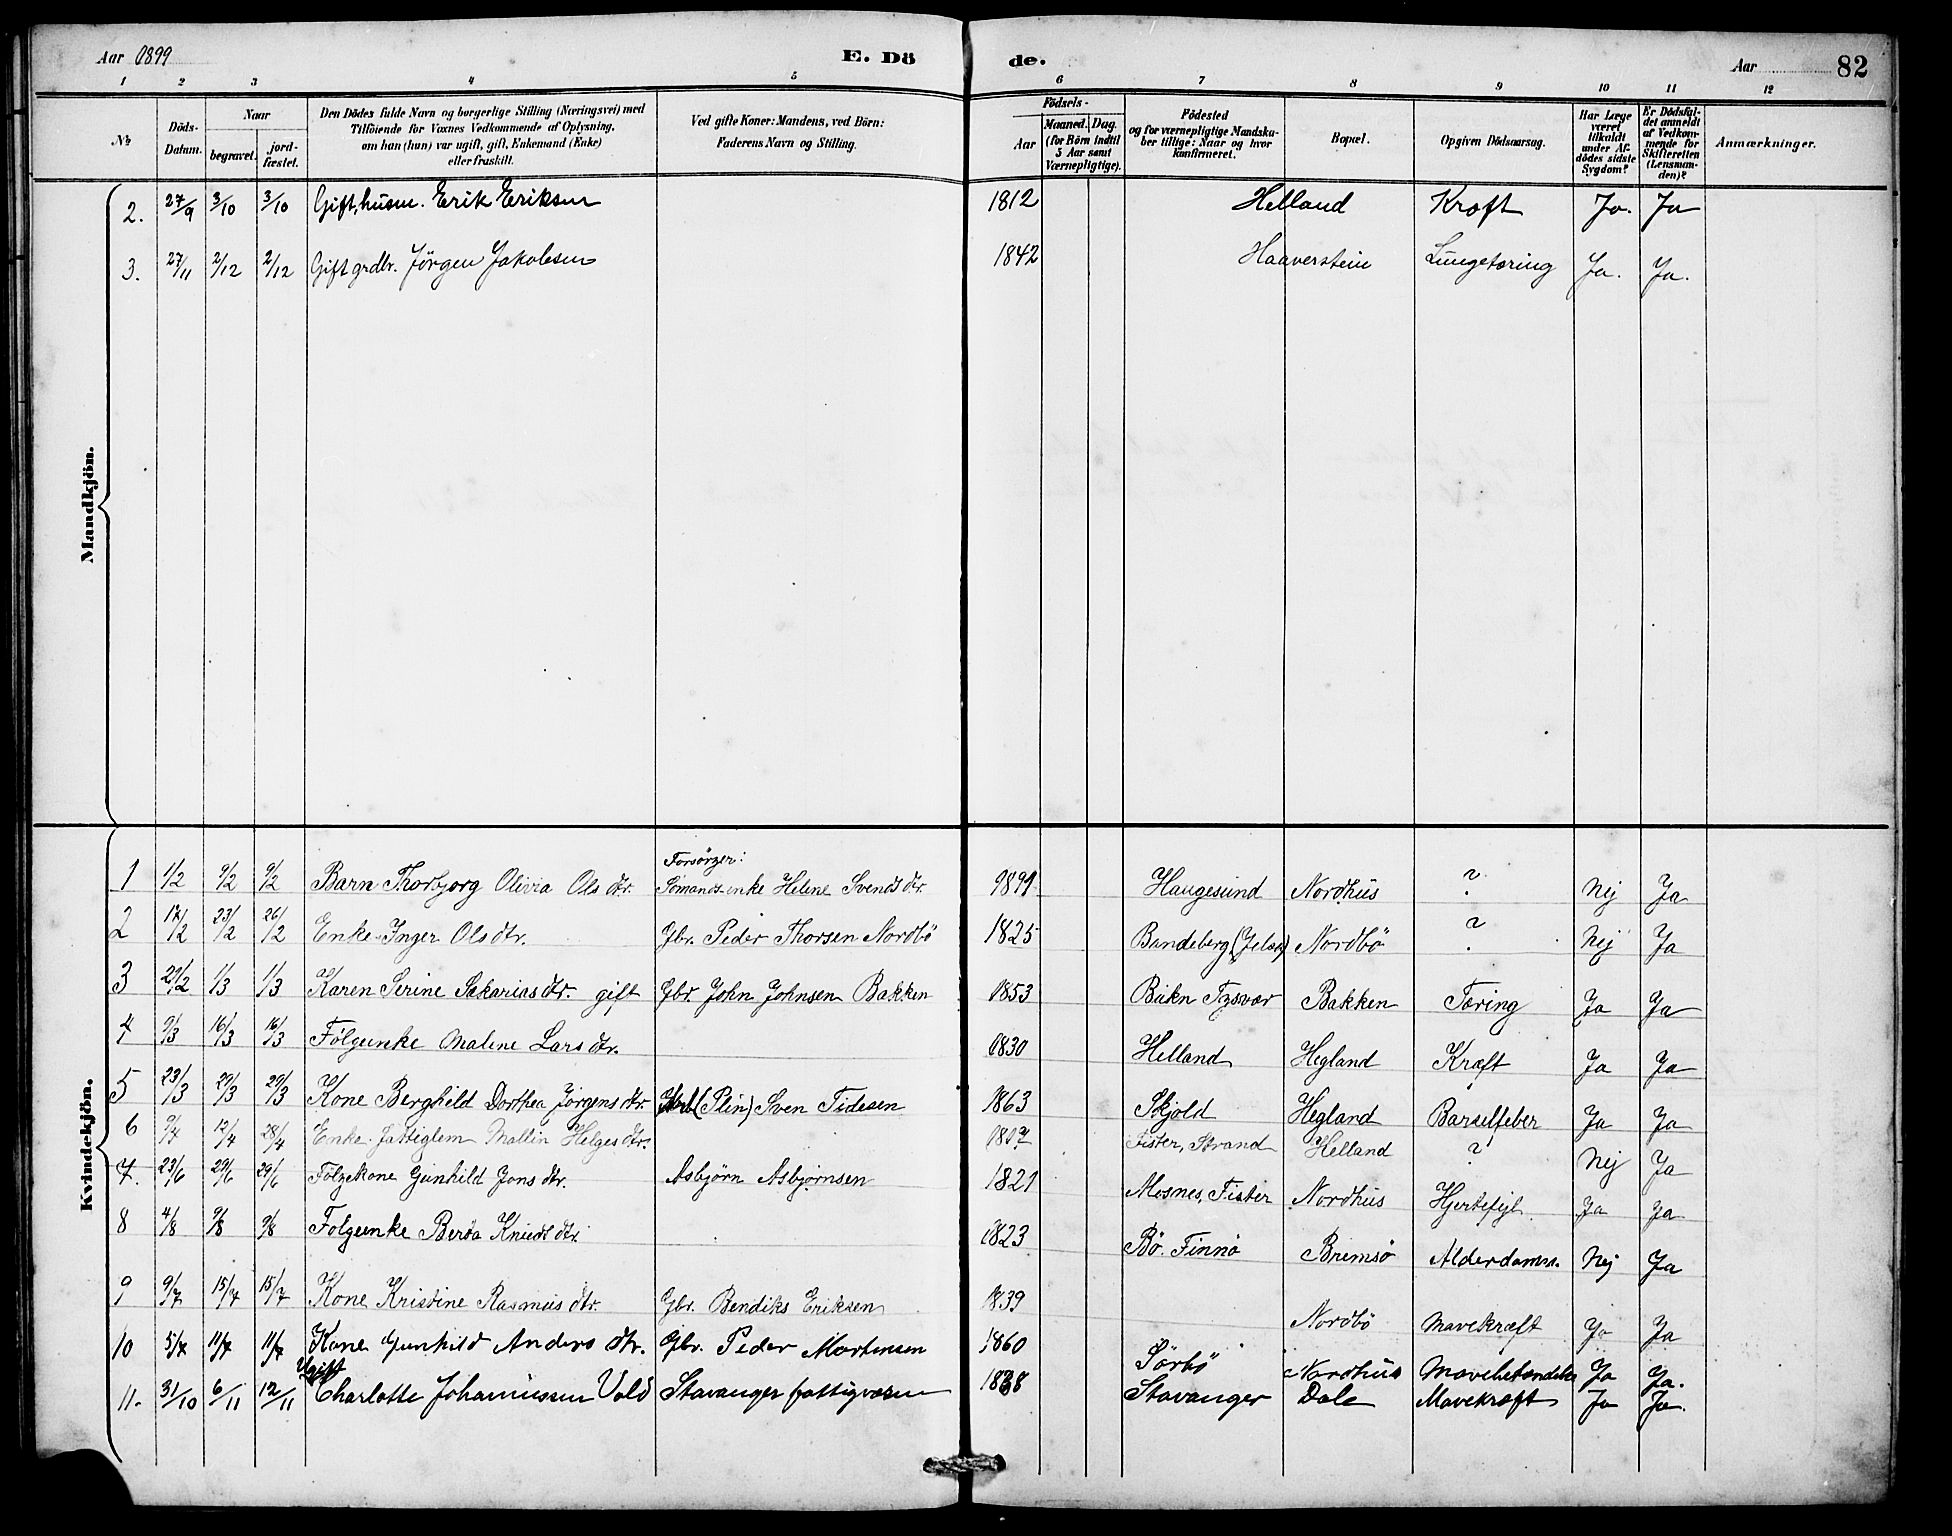 Aar 1899 E. Döde. Aar 82
1 2 3 4 5 6 7 8 9 10 11 12
No Döds-Datum. Naar begravet. jordfæstet. Den Dödes fulde Navn og borgerlige Stilling (Næringsvei) med Tilföiende for Voxnes Vedkommende af Oplysning, om han (hun) var ugift, gift, Enkemand (Enke) eller fraskilt. Ved gifte Koner: Mandens, ved Börn: Faderens Navn og Stilling. Födsels- Aar Maaned. Dag. (for Börn indtil 5 Aar samt Værnepligtige). Födested og for værnepligtige Mandskaber tillige: Naar og hvor Konfirmeret. Bopæl. Opgiven Dödsaarsag. Har Læge været tilkaldt under Afdödes sidste Sygdom? Er Dödsfaldet anmeldt af Vedkommende for Skifteretten (Lensmanden)? Anmærkninger.
Mandkjön.
2. 27/9 3/10 3/10 Gift, husm. Erik Eriksen 1812 Helland Kræft Ja. Ja
3. 27/11 2/12 2/12 Gift grdbr. Jörgen Jakobsen 1842 Haaverstein Lungetæring Ja. Ja.
Kvindekjön.
Forsörger:
1 1/2 9/2 9/2 Barn Thorbjorg Olivia Ols dtr. Sömands enke Helene Svends dtr 1891 Haugesund Nordhus ? Nej Ja
2 17/2 23/2 26/2 Enke Inger Olsdtr. Gbr. Peder Thorsen Nordbö 1825 Bandeberg (Jelsa) Nordbö ? Nej Ja
3 21/2 1/3 1/3 Karen Serine Sakarias dtr. gift Gbr. John Johnsen Bakken 1853 Bukn Tysvær Bakken Tæring Ja Ja
4 9/3 16/3 16/3 Fölgeenke Malene Lars dtr. 1830 Helland Hegland Kræft Ja Ja
5 23/3 29/3 29/3 Kone Berghild Dorthea Jörgens dtr. (Plin) Sven Tidesen 1863 Skjold Hegland Barselfeber Ja Ja
6 9/4 12/4 28/4 Enke. Fattiglem Mallin Helges dtr. Fister, Strand Helland ? Nej Ja
7. 23/6 29/6 29/6 Fölgekone Gunhild Jons dtr. Asbjörn Asbjörnsen 1821 Mosnes, Fister Nordhus Hjertefejl Ja Ja
8 4/8 9/8 9/8 Fölgeenke Berta Knuds dtr. 1823 Bö. Finnö Bremsö Alderdomss. Nej Ja
9 9/7 15/7 15/7 Kone Kristine Rasmus dtr. Gbr. Bendiks Eriksen 1839 Nordbö Mavekræft Ja Ja
10 5/7 11/7 11/7 Kone Gunhild Anders dtr. Gbr. Peder Mortensen 1860 Sörbö Nordhus Mavebetændelse Ja Ja.
Ugift
11. 31/10 6/11 12/11 Charlotte Johannessen Vold Stavanger fattigvæsen 1868 Stavanger Dale Mavekræft Ja Ja.